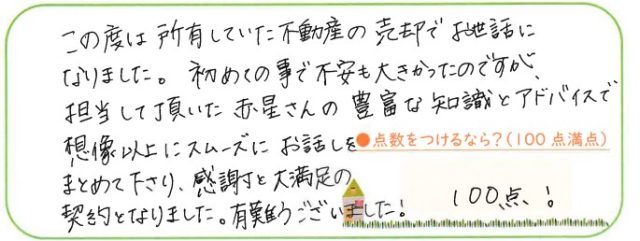 この度は所有していた不動産の売却でお世話に
なりました。初めての事で不安も大きかったのですが、
担当して頂いた赤星さんの豊富な知識とアドバイスで
想像以上にスムーズにお話しを
まとめて下さり、感謝と大満足の
契約となりました。有難うございました!
●点数をつけるなら?(100点満点)
100点、!